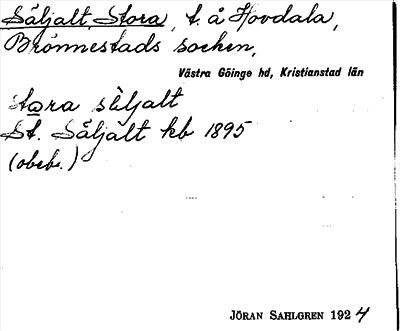 Såljalt, Stora, t. å Hovdala,
Brönnestads socken,
Västra Göinge hd, Kristianstad län
stora sùljalt
St. Såljält kb 1895
(obebe.)
JÖRAN SAHLGREN 1924